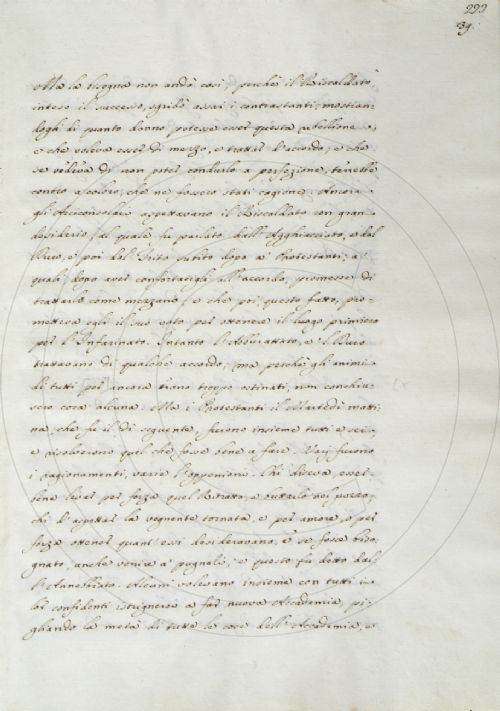 299
39.
Ma la bisogna non andò così; perchè il Riscaldato,
inteso il successo, sgridò assai i contrastanti; mostran-
dogli di quanto danno potesse esser questa ribellione;
e che voleva esser di mezzo, e trattar l'accordo; e che
se vedeva di non poter condurlo a perfezione, terrebbe
contro a coloro, che ne fossero stati cagione. Ancora
gli Arciconsolari aspettavano il Riscaldato con gran
desiderio, al quale fu parlato dall'Agghiacciato, e dal
Duro, e poi dal Trito subito dopo a' Protestanti; a'
quali, dopo aver confortatigli all'accordo, promesse di
trattarlo come mezzano; e che poi questo fatto, pro-
metteva egli il suo voto per ottenere il luogo primiero
per l'Infarinato. Intanto l'Abburattato, e 'l Duro
trattavano di qualche accordo; ma perchè gli animi
di tutti per ancora erano troppo ostinati, non conchiu-
sero cosa alcuna. Ma i Protestanti il Martedì matti-
na, che fu il dì seguente, furono insieme tutti e sei,
e risolverono quel che fosse bene a fare. Varj furono
i ragionamenti, varie l'oppenioni. Chi diceva, esser
bene lever per forza quel Ritratto, e buttarlo nel pozzo;
chi l'aspettar la vegnente tornata, e per amore, o per
forza ottener quant'essi desideravano, e se fosse biso-
gnato, anche venire a' pugnali; e questo fu detto dal-
l'Annebbiato. Alcuni volevano insieme con tutti i
lor confidenti ristrignersi a far nuova Accademia, pi-
gliando la metà di tutte le cose dell'Accademia, e